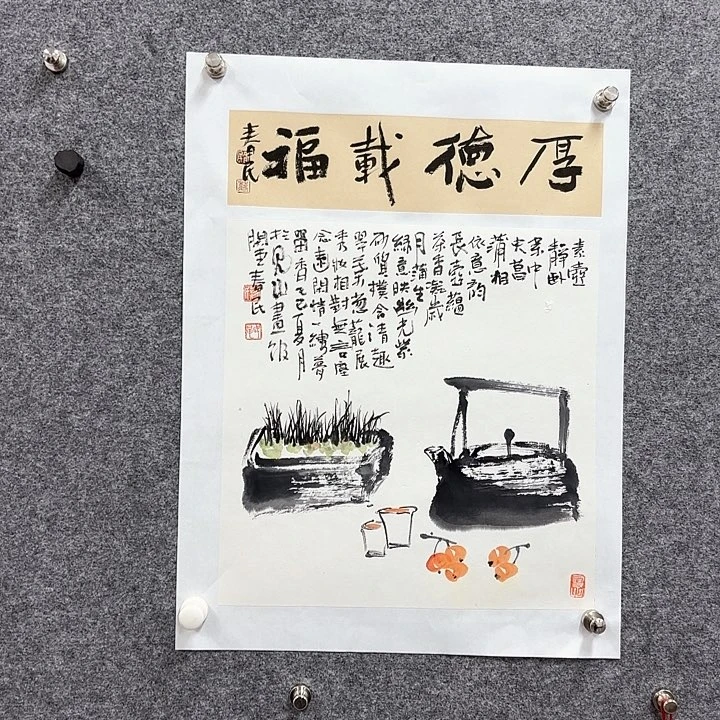 厚德載福
春民
素壺
靜臥
案中
央菖
蒲相
依意韵
長壺蘊
茶香凝歲
月蒲生
綠意映幽光紫
砂質樸含清趣
翠葱蘢展
秀妝相對無言塵
念遠閑情一縷夢
留香乙巳夏月
於見山畫館
春民